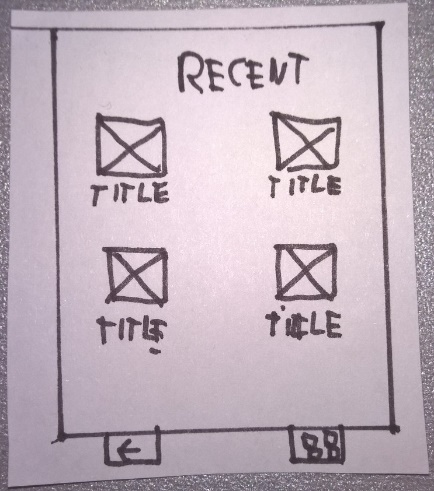 RECENT
TITLE TITLE
TITLE TITLE